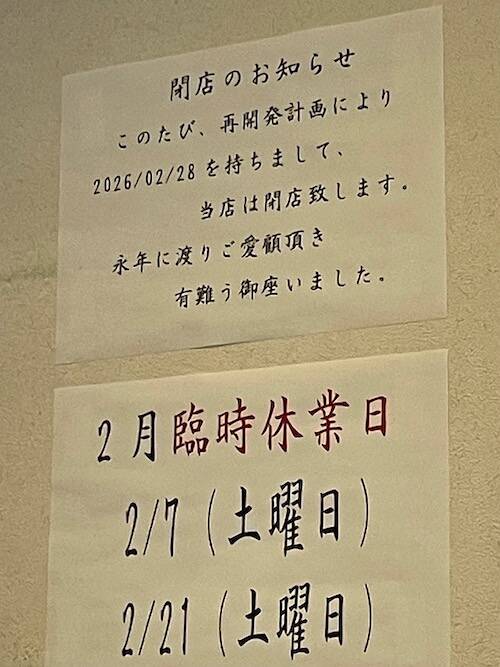 閉店のお知らせ
このたび、再開発計画により
2026/02/28を持ちまして、
当店は閉店致します。
永年に渡りご愛顧頂き
有難う御座いました。
2月臨時休業日
2/7(土曜日)
2/21(土曜日)